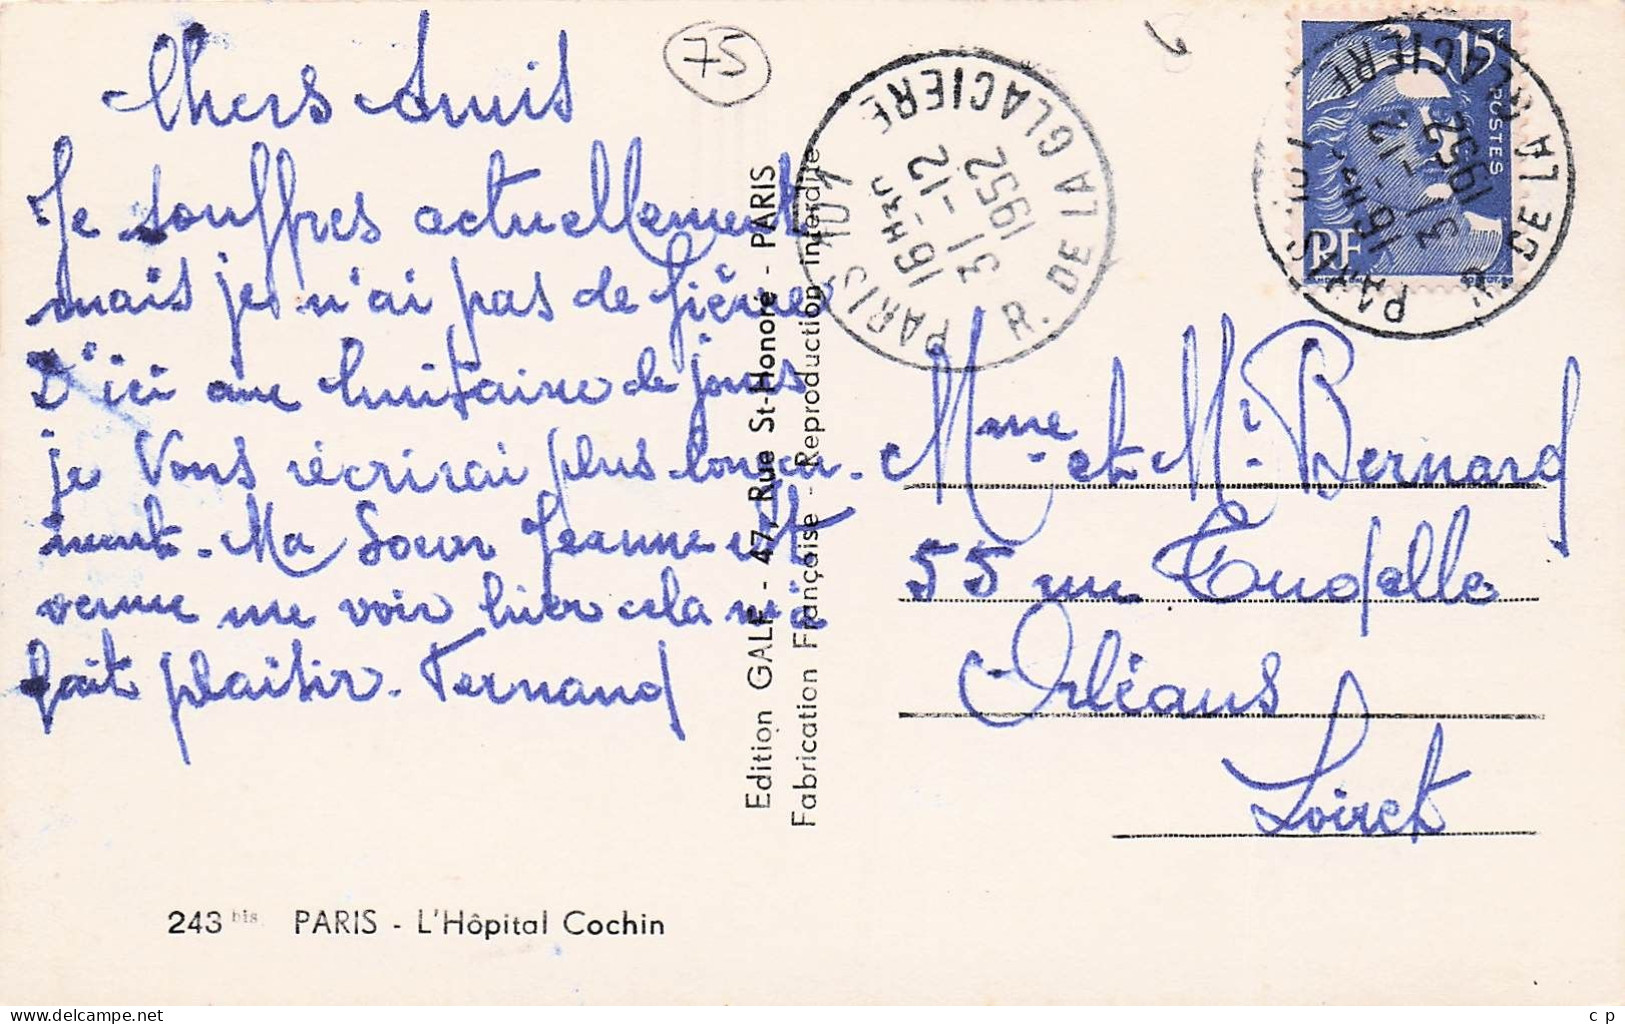 Chers Amis
Je souffres actuellement
mais je n'ai pas de fièvre
D'ici une huitaine de jours
je Vous récrirai plus longue-
ment. Ma Soeur Jeanne est
venue me voir hier cela m'a
fait plaisir. Fernand
243 bis PARIS - L'Hôpital Cochin
75
Edition GALF - 47, Rue St-Honoré - PARIS
Fabrication Française - Reproduction interdite
PARIS 107 R. DE LA GLACIERE
16 H30
31 -12
1952
15F
POSTES
RF
PARIS 107 R. DE LA GLACIERE
16 H30
31 -12
1952
Mme et Mr Bernard
55 rue Tudelle
Orléans
Loiret
c p
www.delcampe.net